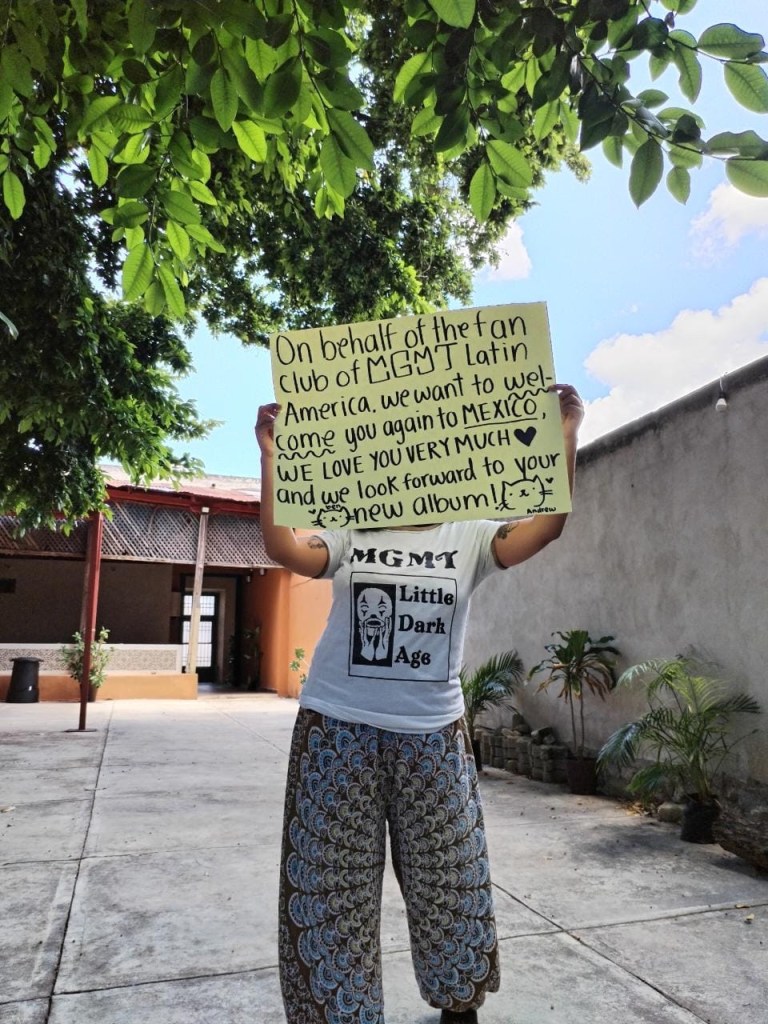 On behalf of the fan
club of MGMT Latin
America, we want to wel-
come you again to MEXICO,
WE LOVE YOU VERY MUCH
and we look forward to your
new album!
Andrew
MGMT
Little
Dark
Age